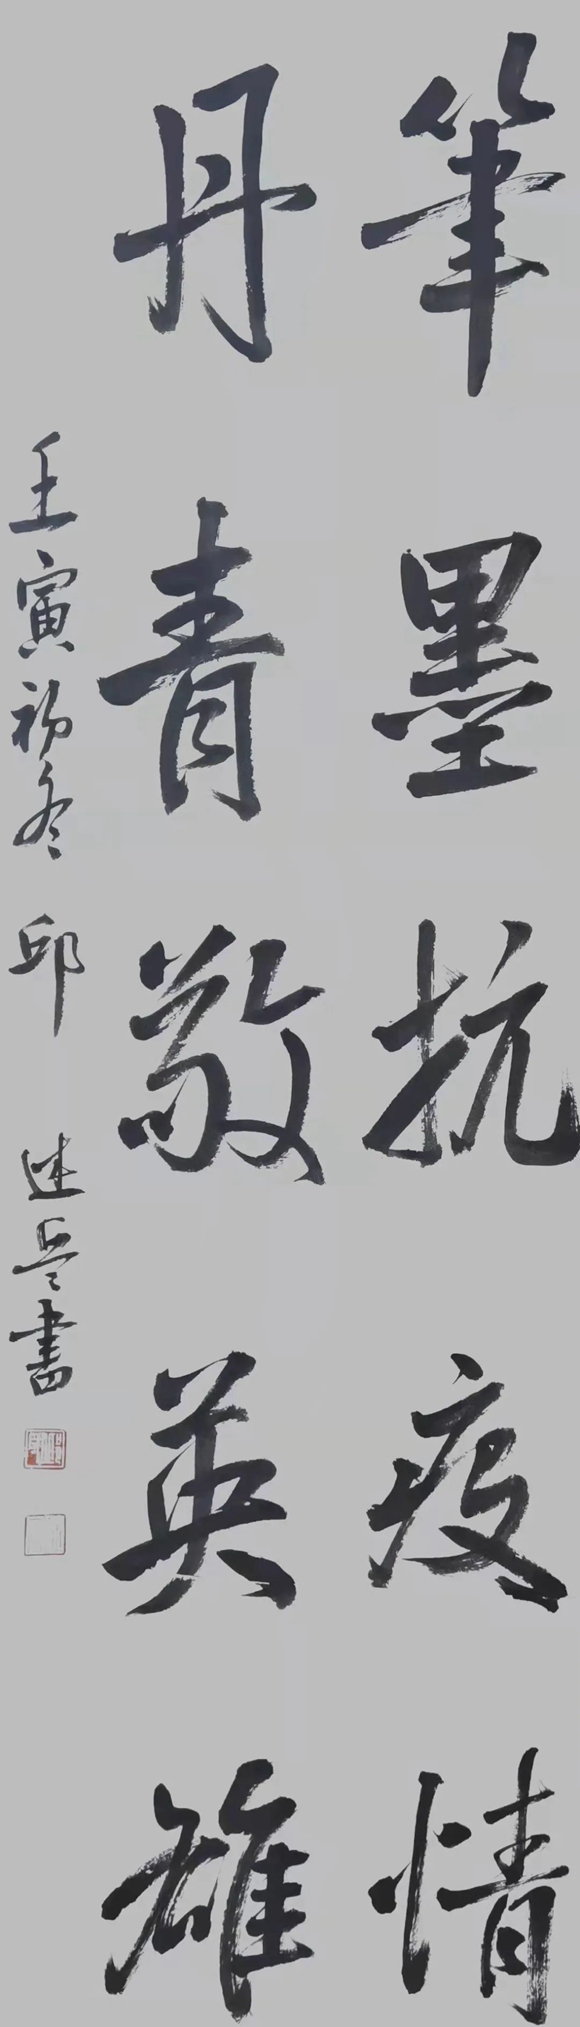 筆墨抗疫情
丹青敬英雄
壬寅初冬 邱述兵書